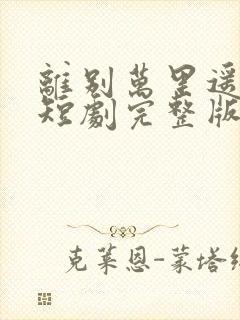 離别萬里遥
短劇完整版
克莱恩-蒙塔